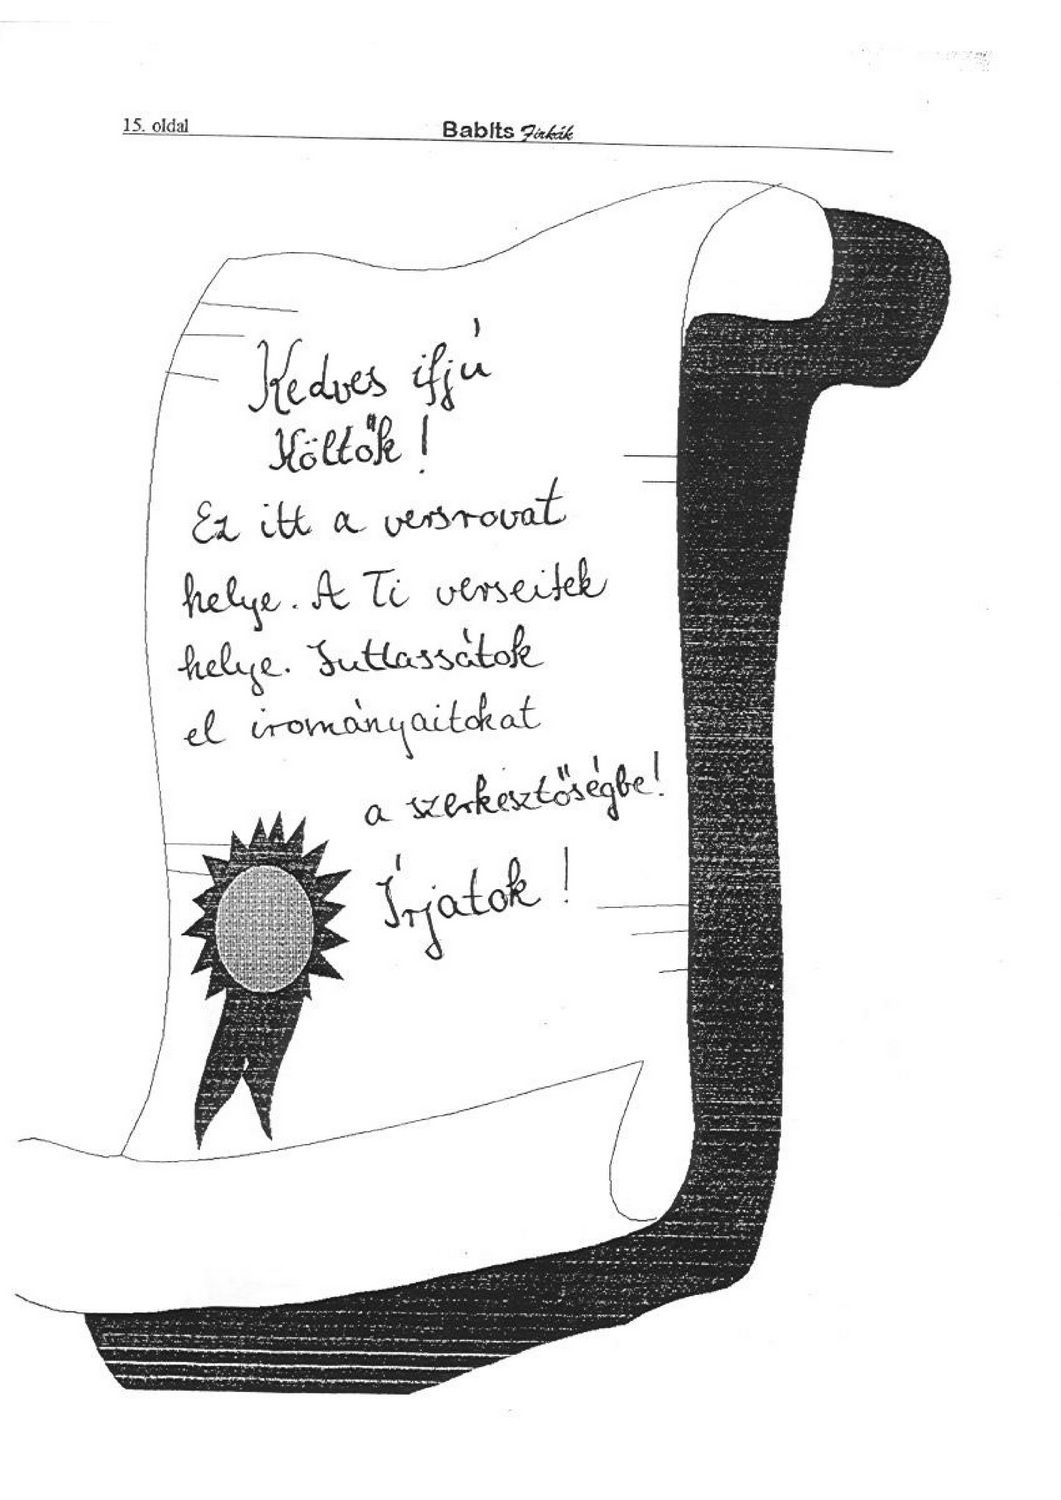 15. oldal
Babits Firkák
Kedves ifjú
Költők!
Ez itt a versrovat
helye. A Ti verseitek
helye. Juttassátok
el irományaitokat
a szerkesztőségbe!
Írjatok!